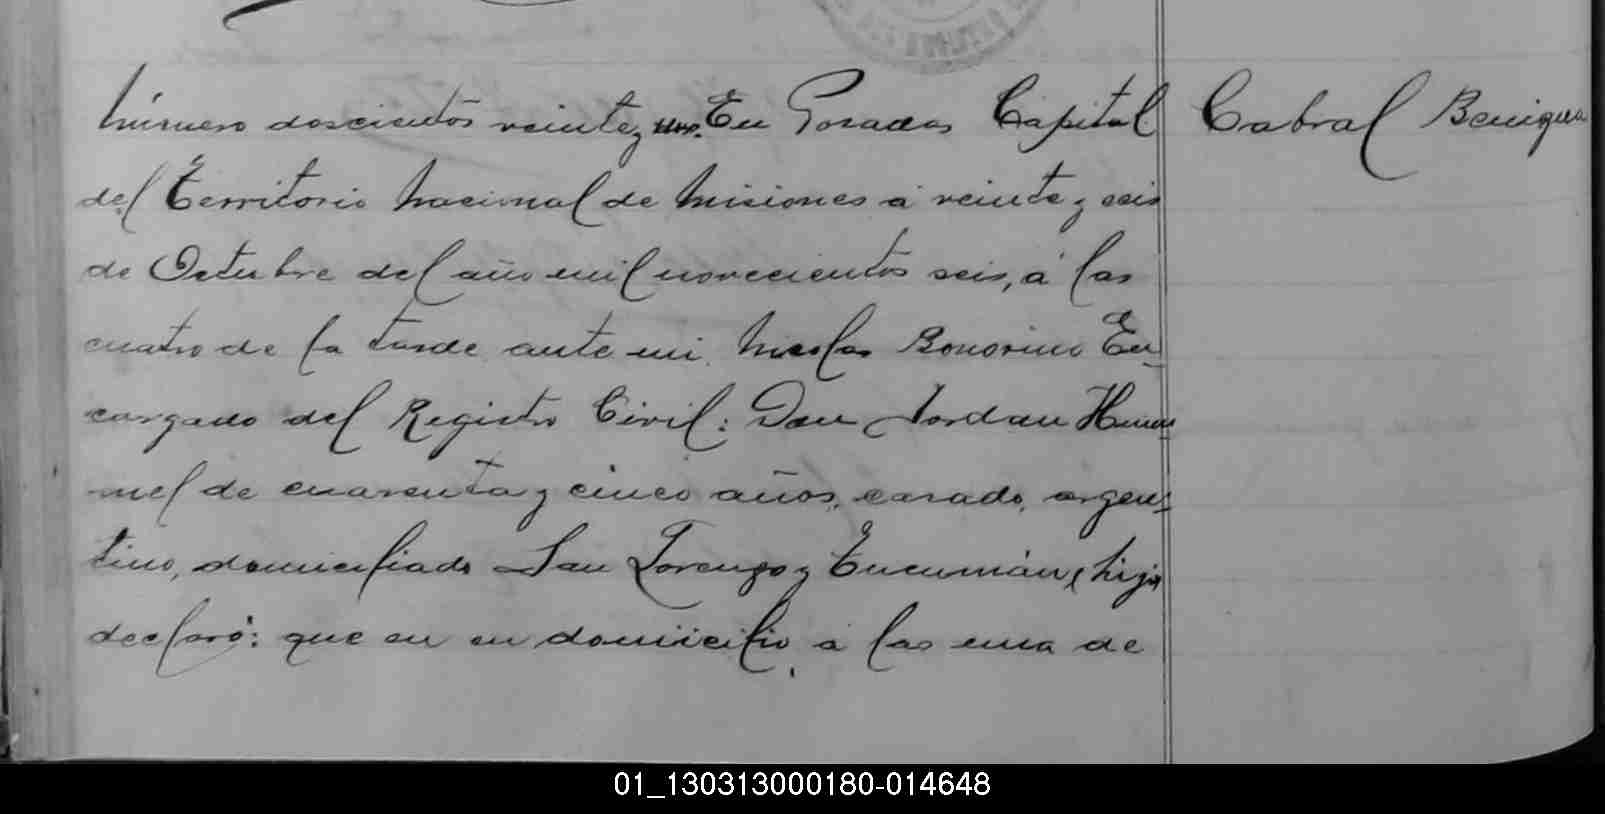 Número doscientos veinte y uno. En Posadas Capital
Cabral Benigna
del Territorio Nacional de Misiones á veinte y seis
de Octubre del año mil novecientos seis, á las
cuatro de la tarde ante mi Nicolas Bonorino En-
cargado del Registro Civil: Don Jordan Hum-
mel de cuarenta y cinco años, casado, argen-
tino, domiciliado San Lorenzo y Tucumán, hijo
declaró: que en su domicilio, a las una de
01_130313000180-014648